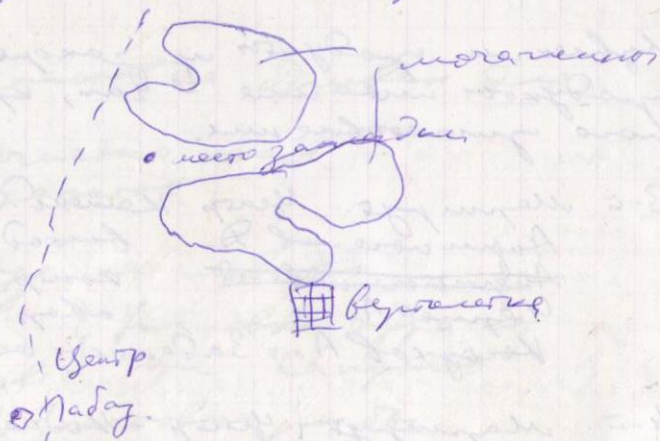 мочажины
место засидки
вертолетка
Центр
Лабаз.